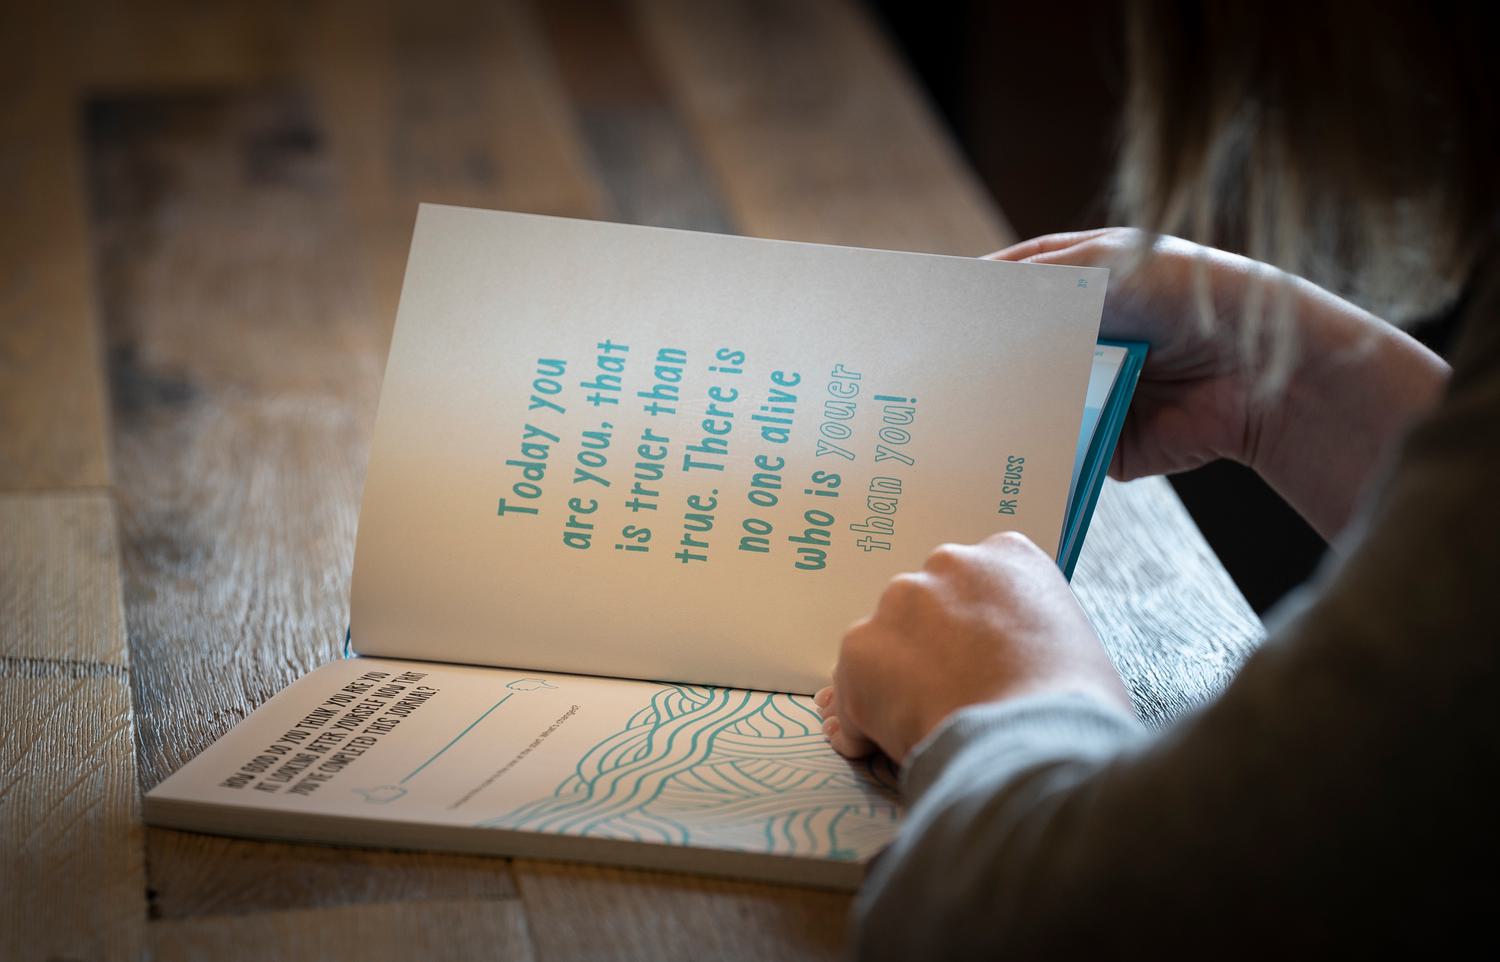 Today you
are you, that
is truer than
true. There is
no one alive
who is youer
than you!
DR SEUSS
89
HOW GOOD DO YOU THINK YOU ARE
AT LOOKING AFTER YOURSELF NOW THAT
YOU'VE COMPLETED THIS JOURNAL?
at the start. What's changed?